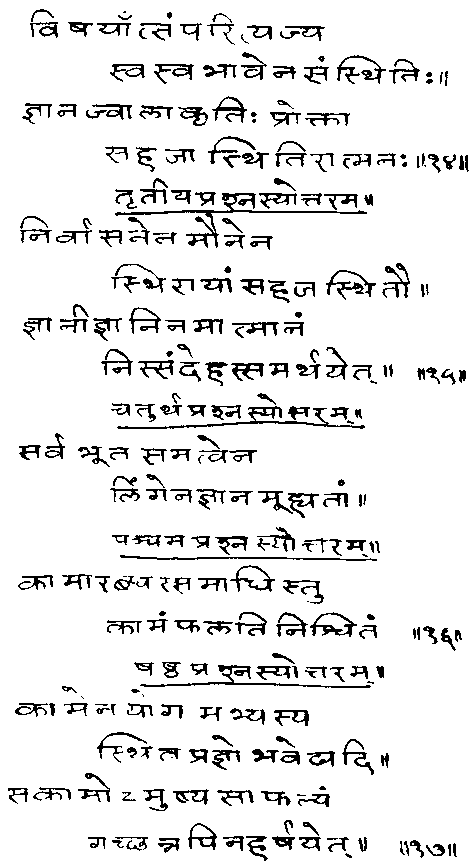 विषयाँत्संपरित्यज्य
स्वस्वभावेन संस्थितिः॥
ज्ञानज्वालाकृतिः प्रोक्ता
सहजा स्थितिरात्मनः॥१४॥
तृतीयप्रश्नस्योत्तरम्॥
निर्वासनेन मौनेन
स्थिरायां सहज स्थितौ॥
ज्ञानीज्ञानिनमात्मानं
निस्संदेहस्समर्थयेत्॥ ॥१५॥
चतुर्थप्रश्नस्योत्तरम्॥
सर्वभूतसमत्वेन
लिंगेनज्ञानमूह्यतां॥
पञ्चमप्रश्नस्योत्तरम्॥
कामारब्धस्समाधिस्तु
कामंफलति निश्चितं ॥१६॥
षष्ठप्रश्नस्योत्तरम्॥
कामेन योगमभ्यस्य
स्थितप्रज्ञो भवेद्यदि॥
सकामोऽमुष्य साफल्यं
गच्छन्नपिनहर्षयेत्॥ ॥१७॥